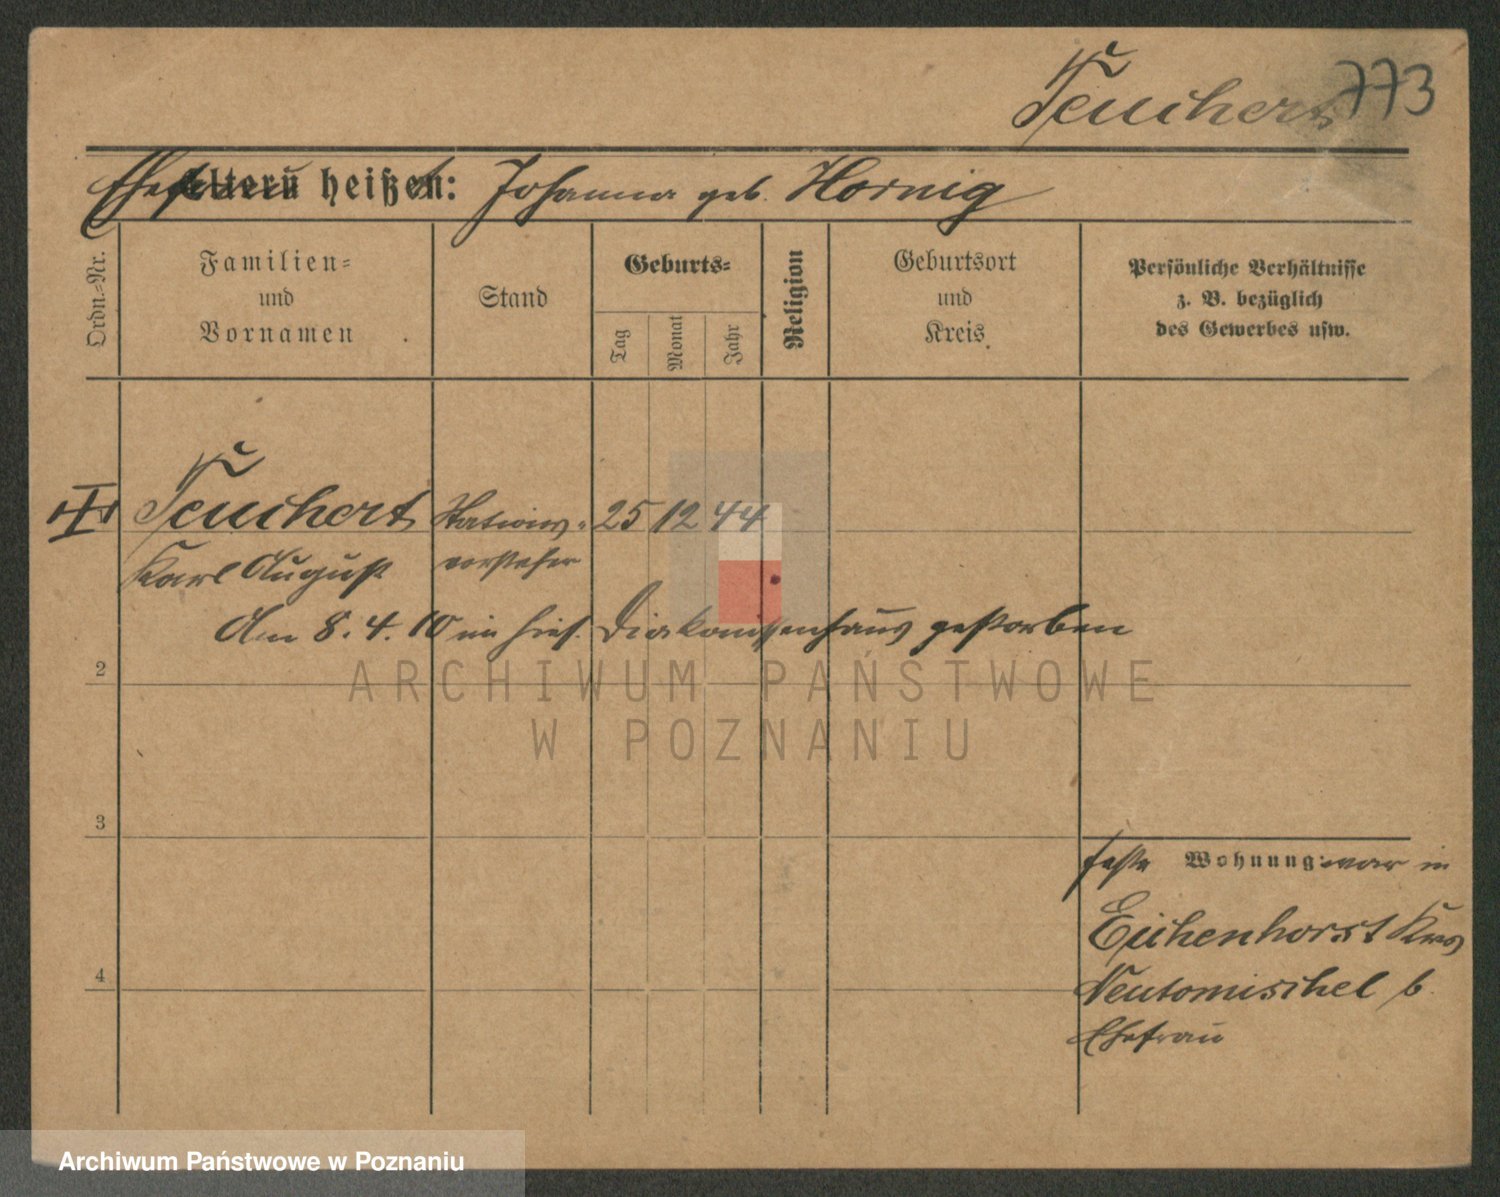 Teuchert 773
Ehefrau heißt: Johanna geb. Hornig
Ordn.-Nr.
Familien-
und
Vornamen
Stand
Geburts-
Tag
Monat
Jahr
Religion
Geburtsort
und
Kreis.
Persönliche Verhältnisse
z. B. bezüglich
des Gewerbes usw.
Teuchert Stations- 25 12 44
Karl August vorsteher
Am 8. 4. 10 im hies. Diakonissenhaus gestorben
2
3
4
feste Wohnung: war in
Eichenhorst Krs
Neutomischel b.
Ehefrau
ARCHIWUM PAŃSTWOWE
W POZNANIU
Archiwum Państwowe w Poznaniu